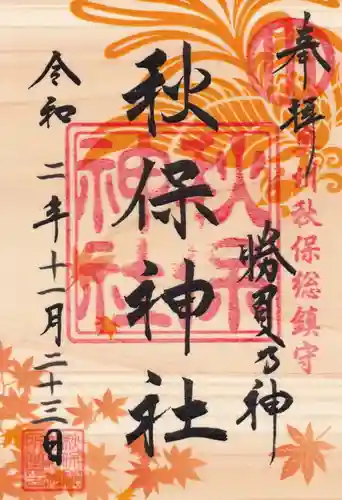 奉拝
秋保総鎮守
勝負の神
秋保神社
秋保神社
令和二年十一月二十三日